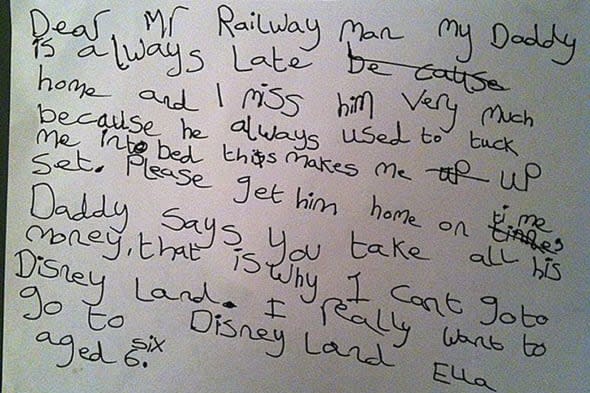 Dear Mr Railway Man my Daddy
is always Late be cause
home and I miss him very much
because he always used to tuck
me into bed this makes me up UP
set. Please get him home on ti me
Daddy says you take all his
money, that is why I cant go to
Disney Land. I really want to
go to Disney Land Ella
aged six 6.